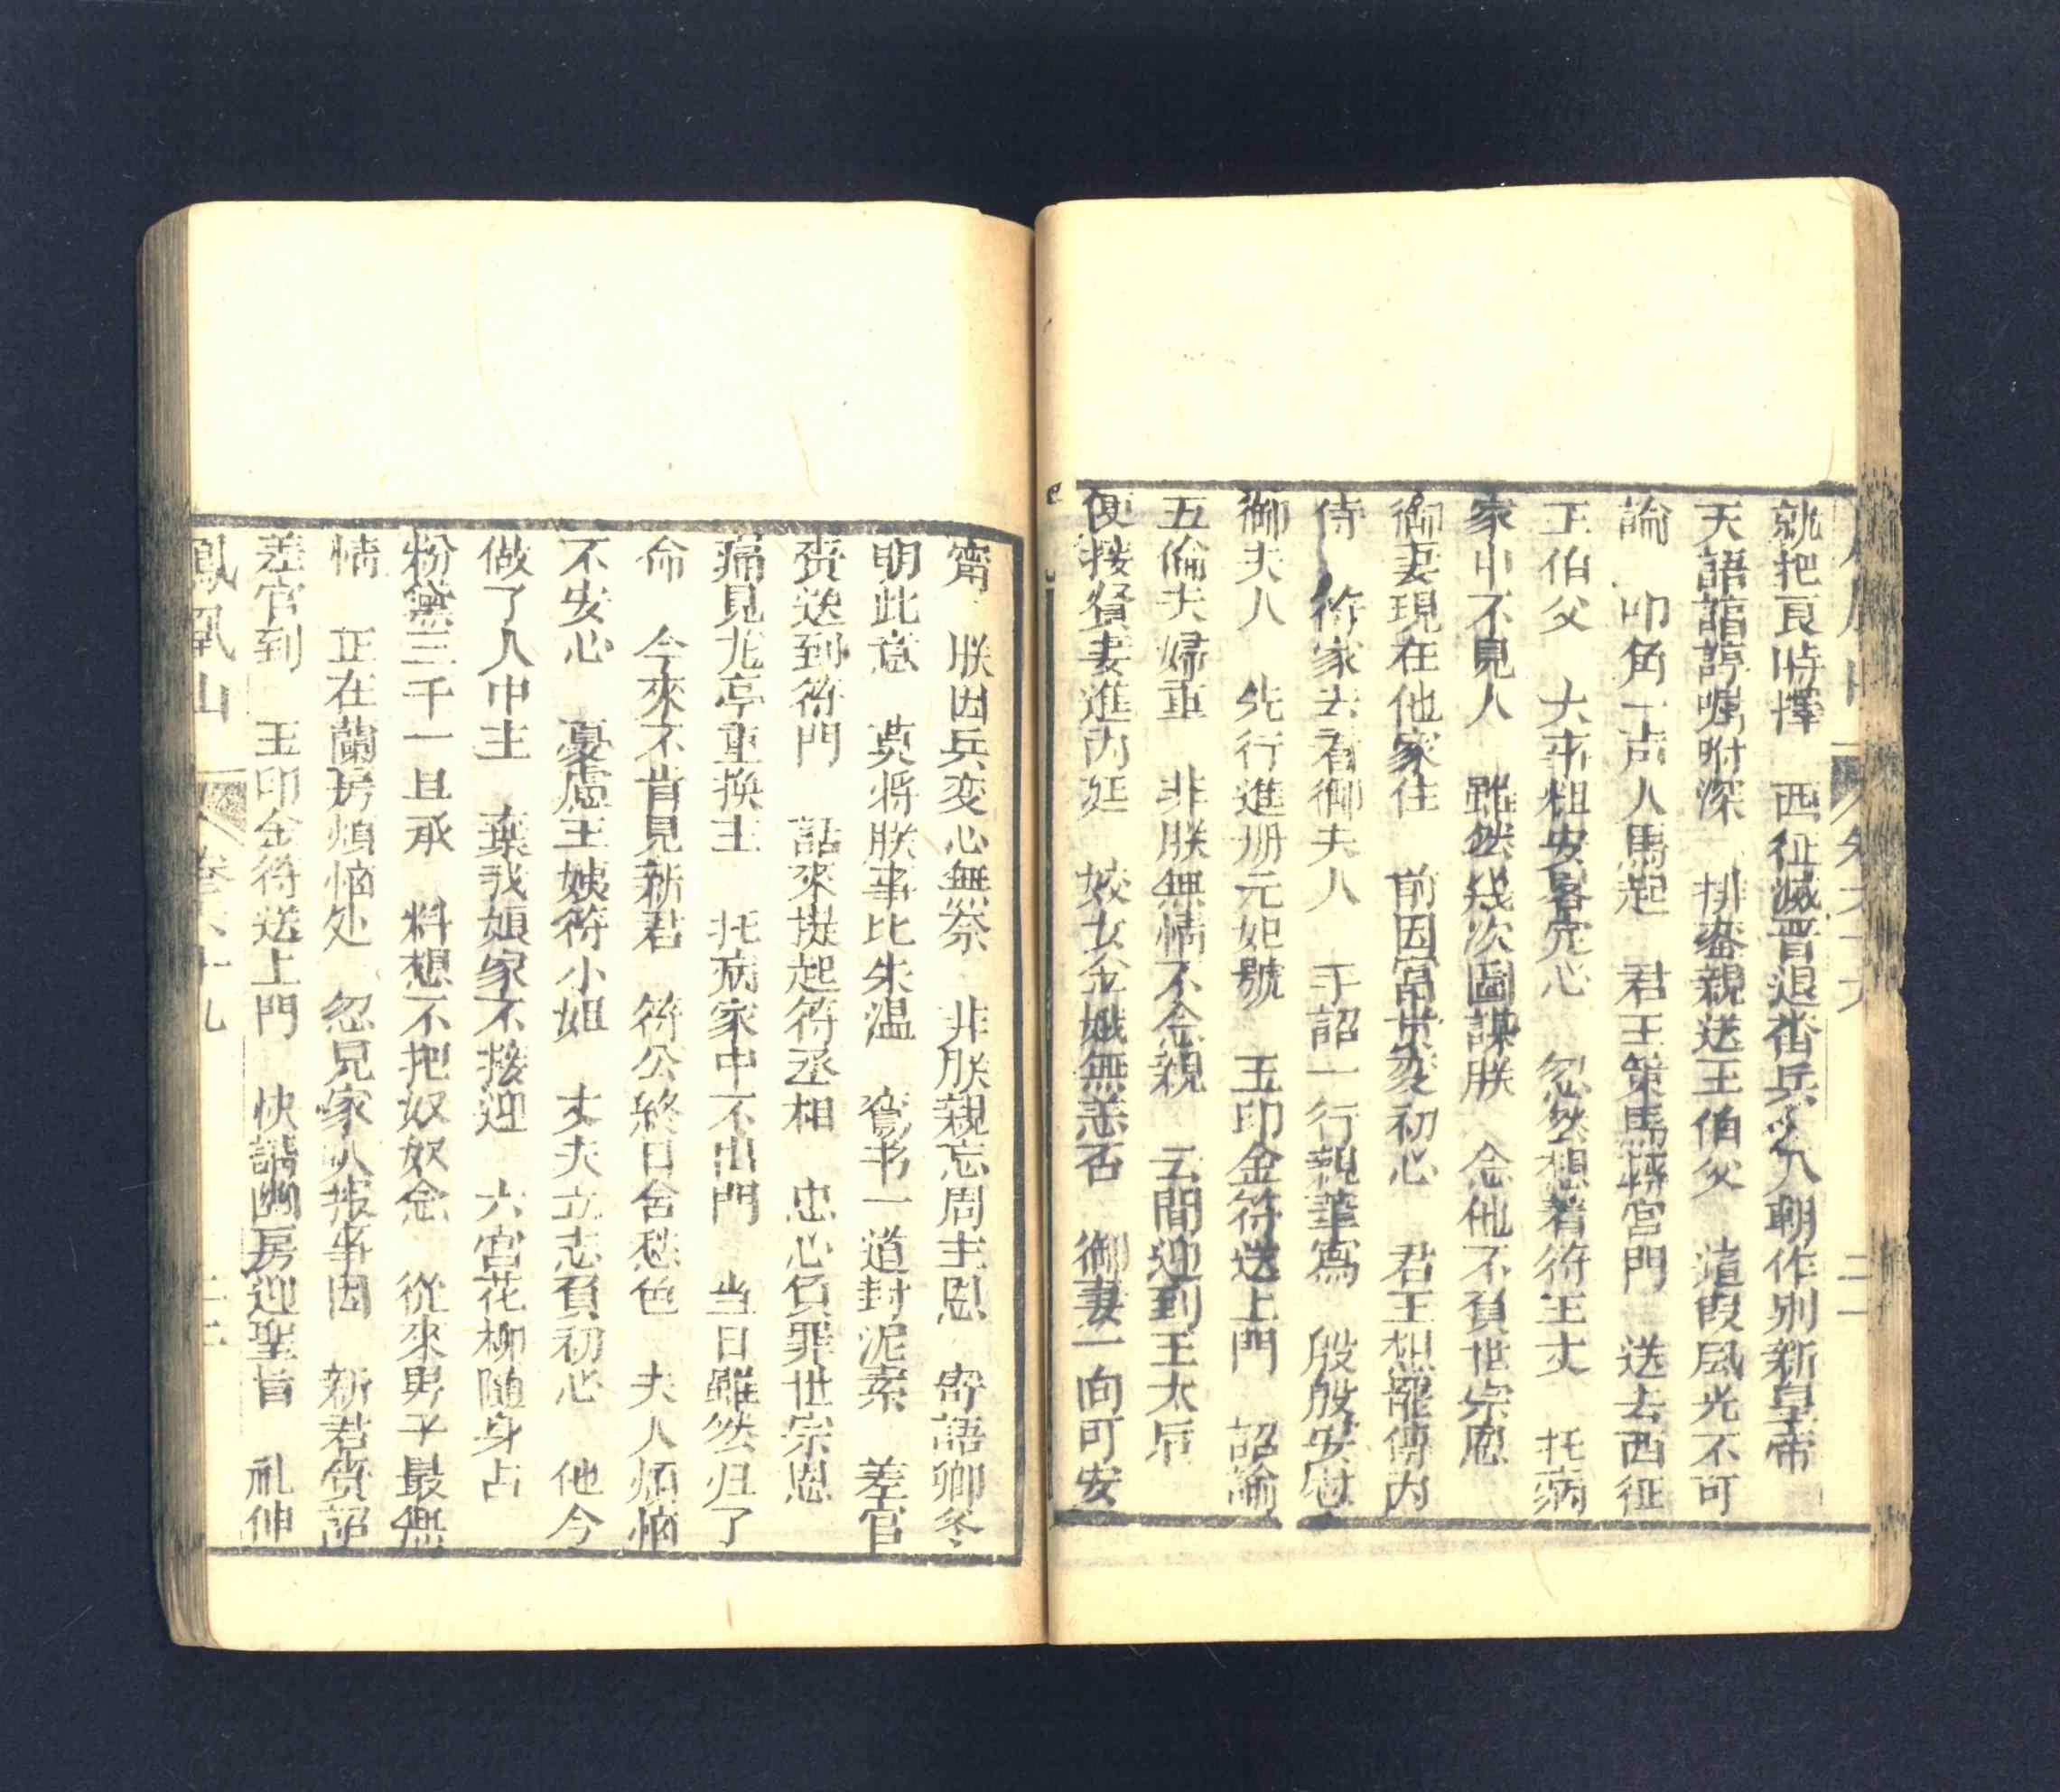 就把良時擇　西征滅晋退畨兵　入朝作别新皇帝
天語諳諄嘱咐深　排鑾親送王伯父　這叚風光不可
論　叩角一声人馬起　君王策馬轉宮門　送去西征
王伯父　大事粗安畧完心　忽然想着符王丈　托病
家中不見人　雖然㡬次圖謀朕　念他不負世宗恩
御妻現在他家住　前因富貴変初心　君王想罷傳内
侍　符家去看御夫人　手詔一行親筆寫　殷殷安慰
御夫人　先行進册元妃號　玉印金符送上門　詔諭
五倫夫婦重　非朕無情不念親　云間迎到王太后
便接賢妻進内廷　姣女金娥無恙否　御妻一向可安
寗　朕因兵変心無奈　非朕親忘周主恩　寄語卿冬
明此意　莫將朕事比朱温　鸞书一道封泥素　差官
赍送到符門　話來提起符丞相　忠心負罪世宗恩
痛見龙亭重换主　托病家中不出門　当日雖然归了
命　今來不肯見新君　符公終日含愁色　夫人煩惱
不安心　憂慮王姨符小姐　丈夫立志負初心　他今
做了人中主　棄我娘家不接迎　六宮花柳随身占
粉黛三千一旦承　料想不把奴奴念　從來男子最無
情　正在蘭房煩惱处　忽見家人报事因　新君赍詔
差官到　玉印金符送上門　快請幽房迎聖旨　礼伸
鳳凰山　卷六十九　二二